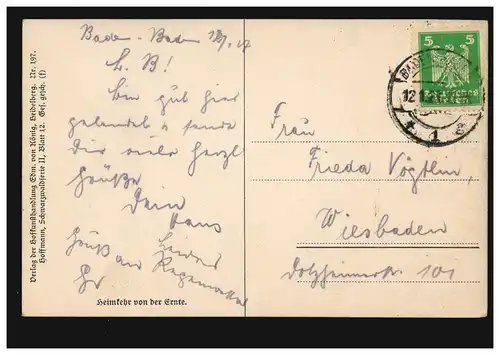 Verlag der Hofkunsthandlung Edm. von König, Heidelberg. Nr. 197.
Hoffmann, Schwarzwaldserie II, Blatt 12. Ges. gesch. (f)
Baden-Baden
L. B!
Bin gut hier
gelandet & sende
Dir viele herzl
Grüße
Dein
Hans
Gruß an
Leider
Regenwetter
Heimkehr von der Ernte.
5 5
Deutsches
Reich
BADE
12
Frau
Frieda Vögtlin,
Wiesbaden
Dotzheimerstr 101